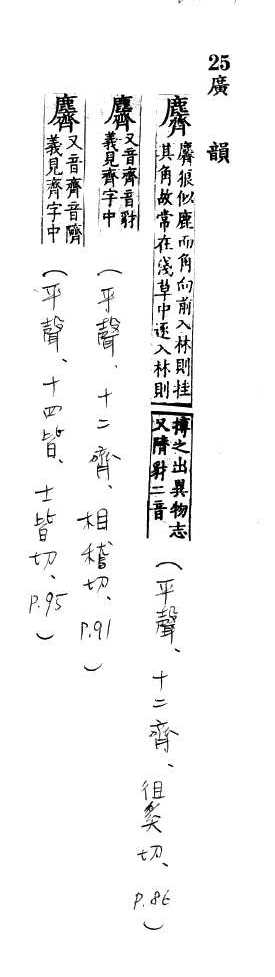 25廣韻
麡
麡狼似鹿而角向前入林則挂
其角故常在淺草中逐入林則
搏之出異物志
又隮豺二音
(平聲、十二齊、徂奚切、P.86)
麡
又音齊音豺
義見齊字中
(平聲、十二齊、相稽切、P.91)
麡
又音齊音隮
義見齊字中
(平聲、十四皆、士皆切、P.95)